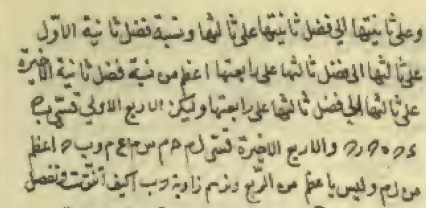 وعلى ثانيتها الى فضل ثانيتها على ثالثها ونسبة فضل ثانية الاول
على ثالثها الى فضل ثالثها على رابعتها اعظم من نسبة فضل ثانية الاخيرة
على ثالثها الى فضل ثالثها على رابعتها وليكن الاربع الاولى قسى
والاربع الاخيرة قسى لم م م ح م و ب ه اعظم
من لم وليس باعظم من الربع و زاوية كيف اتفقت ونفصل